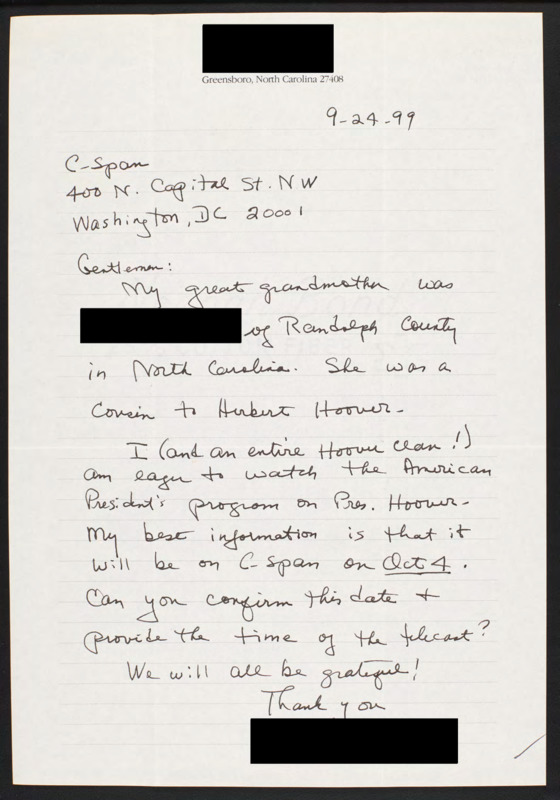 Greensboro, North Carolina 27408
9-24-99
C-Span
400 N. Capital St. NW
Washington, DC 20001
Gentlemen:
My great grandmother was
of Randolph County
in North Carolina. She was a
Cousin to Herbert Hoover.
I (and an entire Hoover clan!)
am eager to watch the American
President's program on Pres. Hoover.
My best information is that it
will be on C-Span on Oct 4.
Can you confirm this date +
provide the time of the telecast?
We will all be grateful!
Thank you